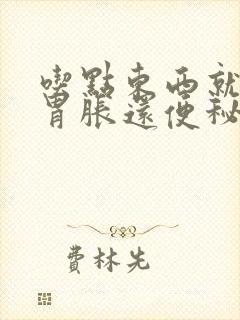 喫點東西就
胃脹還便秘
費林先